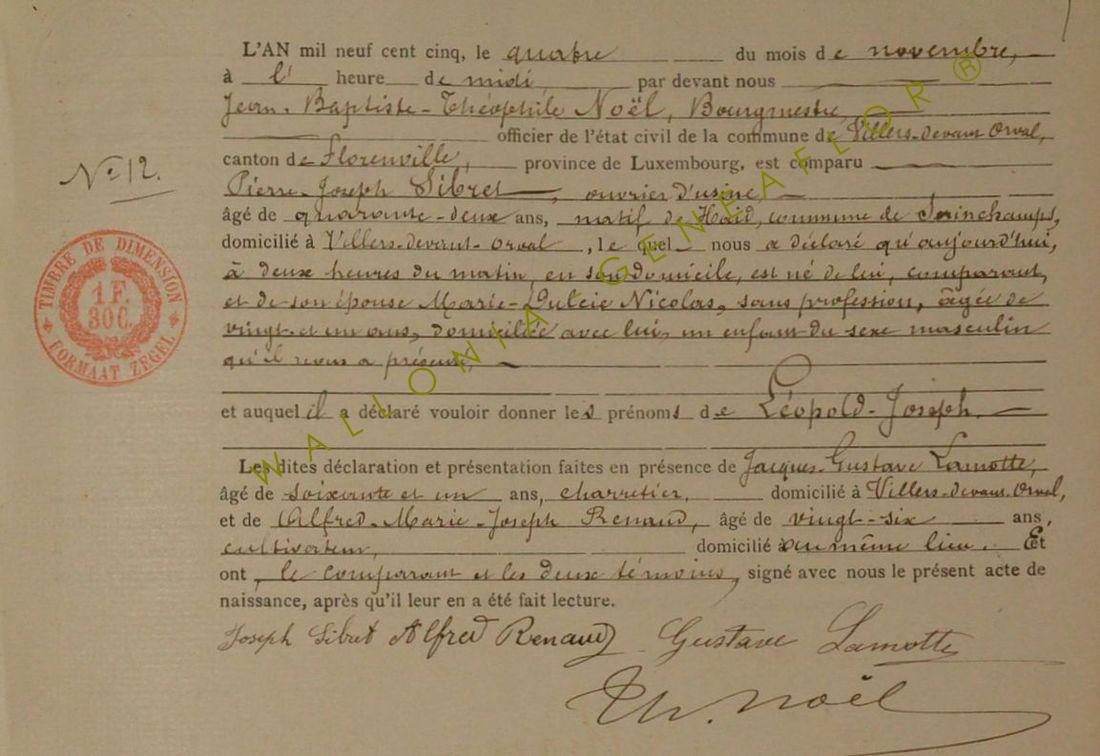 L'AN mil neuf cent cinq, le quatre du mois de novembre,
à l' heure de midi, par devant nous
Jean-Baptiste-Théophile Noël, Bourgmestre,
officier de l'état civil de la commune de Villers-devant-Orval,
canton de Florenville, province de Luxembourg, est comparu
No 12.
Pierre-Joseph Sibret, ouvrier d'usine,
âgé de quarante-deux ans, natif de Haid, commune de Serinchamps,
domicilié à Villers-devant-Orval, lequel nous a déclaré qu'aujourd'hui,
à deux heures du matin, en son domicile, est né de lui, comparant,
et de son épouse Marie-Dulcie Nicolas, sans profession, âgée de
vingt-et-un ans, domiciliée avec lui, un enfant du sexe masculin
qu'il nous a présenté,
TIMBRE DE DIMENSION
1 F.
30 C.
FORMAAT ZEGEL
et auquel il a déclaré vouloir donner les prénoms de Léopold-Joseph.
Les dites déclaration et présentation faites en présence de Jacques-Gustave Lamotte,
âgé de soixante et un ans, charretier, domicilié à Villers-devant-Orval,
et de Alfred-Marie-Joseph Renaud, âgé de vingt-six ans,
cultivateur, domicilié au même lieu. Et
ont, le comparant et les deux témoins, signé avec nous le présent acte de
naissance, après qu'il leur en a été fait lecture.
Joseph Sibret Alfred Renaud Gustave Lamotte
Th. Noël
WALLONIA GENEAFLOR ®